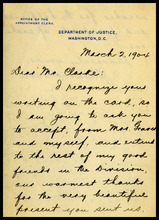 OFFICE OF THE
APPOINTMENT CLERK.
DEPARTMENT OF JUSTICE,
WASHINGTON, D.C.
March 2, 1904
Dear Mr. Clarke:
I recognize your
writing on the card, so
I am going to ask you
to accept, from Mrs.
and myself, and extend
to the rest of my good
friends in the Division,
our warmest thanks
for the very beautiful
present you sent us.